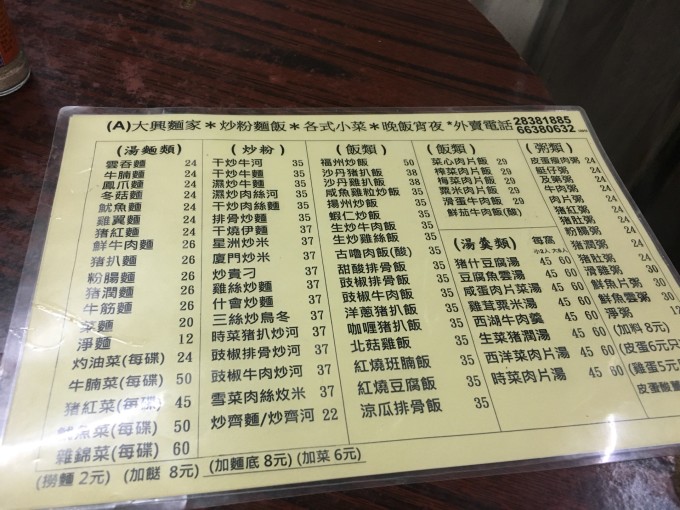 (A)大興麵家＊炒粉麵飯＊各式小菜＊晚飯宵夜*外賣電話 28381885
66380632
(湯麵類)
雲吞麵 24
牛腩麵 24
鳳爪麵 24
冬菇麵 24
魷魚麵 24
雞翼麵 24
豬紅麵 24
鮮牛肉麵 26
豬扒麵 26
粉腸麵 26
豬潤麵 26
牛筋麵 26
菜麵 20
淨麵 12
灼油菜(每碟) 24
牛腩菜(每碟) 50
豬紅菜(每碟) 45
魷魚菜(每碟) 50
雜錦菜(每碟) 60
(炒粉)
干炒牛河 35
干炒牛麵 35
濕炒牛河 35
濕炒肉絲河 35
干炒肉絲麵 35
排骨炒麵 35
干燒伊麵 35
星洲炒米 37
廈門炒米 37
炒貴刁 37
雞絲炒麵 37
什會炒麵 37
三絲炒烏冬 37
時菜豬扒炒河 37
豉椒排骨炒河 37
豉椒牛肉炒河 37
雪菜肉絲炆米 37
炒齋麵/炒齋河 22
(飯類)
福州炒飯 50
沙丹豬扒飯 38
沙丹雞扒飯 38
咸魚雞粒炒飯 38
揚州炒飯 35
蝦仁炒飯 35
生炒牛肉飯 35
生炒雞絲飯 35
古嚕肉飯(酸) 35
甜酸排骨飯 35
豉椒排骨飯 35
豉椒牛肉飯 35
洋蔥豬扒飯 35
咖喱豬扒飯 35
北菇雞飯 35
紅燒班腩飯 35
紅燒豆腐飯 35
涼瓜排骨飯 35
(飯類)
菜心肉片飯 29
榨菜肉片飯 29
梅菜肉片飯 29
粟米肉片飯 29
滑蛋牛肉飯 29
鮮茄牛肉飯(酸)
(湯羹類) 每窩
小2人 大4人
豬什豆腐湯 45 60
豆腐魚雲湯 45 60
咸蛋肉片菜湯 45 60
雞茸粟米湯 45 60
西湖牛肉羹 45 60
生菜豬潤湯 45 60
西洋菜肉片湯 45 60
時菜肉片湯 45 60
(粥類)
皮蛋瘦肉粥 24
艇仔粥 24
及第粥 24
牛肉粥 24
肉片粥 24
豬紅粥 24
豬肚粥 24
粉腸粥 24
豬潤粥 24
魚片粥 24
滑雞粥 30
鮮魚片粥 30
鮮魚雲粥 30
淨粥 12
(加料 8元)
(皮蛋6元只
(雞蛋5元只
皮蛋酸薑
(撈麵 2元) (加餸 8元) (加麵底 8元) (加菜 6元)